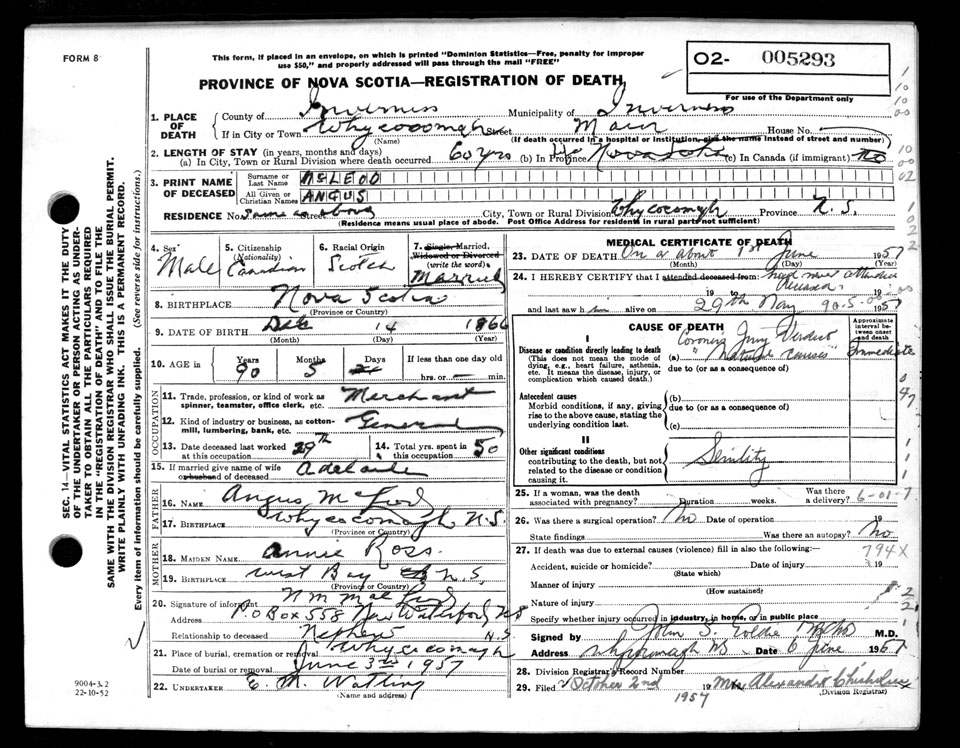 FORM 8
This form, if placed in an envelope, on which is printed "Dominion Statistics—Free, penalty for improper
use $50," and properly addressed will pass through the mail "FREE"
O2- 005293
For use of the Department only
PROVINCE OF NOVA SCOTIA—REGISTRATION OF DEATH
1. PLACE OF DEATH
County of Inverness Municipality of Inverness
If in City or Town Whycocomagh Street Main House No.
(Name) (If death occurred in a hospital or institution, said the name instead of street and number)
2. LENGTH OF STAY (in years, months and days)
(a) In City, Town or Rural Division where death occurred 60 yrs (b) In Province Life Nova Scotia (c) In Canada (if immigrant) no
3. PRINT NAME OF DECEASED
Surname or Last Name McLEOD
All Given or Christian Names ANGUS
RESIDENCE No. Same as above Street City, Town or Rural Division Whycocomagh Province N.S.
(Residence means usual place of abode. Post Office Address for residents in rural parts not sufficient)
4. Sex Male
5. Citizenship (Nationality) Canadian
6. Racial Origin Scotch
7. Single, Married, Widowed or Divorced (write the word) Married
8. BIRTHPLACE Nova Scotia
(Province or Country)
9. DATE OF BIRTH Dec 14 1866
(Month) (Day) (Year)
10. AGE in Years 90 Months 5 Days If less than one day old
hrs. or min.
OCCUPATION
11. Trade, profession, or kind of work as spinner, teamster, office clerk, etc. Merchant
12. Kind of industry or business, as cotton-mill, lumbering, bank, etc. General
13. Date deceased last worked at this occupation 29th
14. Total yrs. spent in this occupation 50
15. If married give name of wife or husband of deceased Adelaide
FATHER
16. NAME Angus McLeod
17. BIRTHPLACE Whycocomagh N.S.
(Province or Country)
MOTHER
18. MAIDEN NAME Annie Ross
19. BIRTHPLACE West Bay N.S.
(Province or Country)
20. Signature of informant N M MacLeod
Address P.O Box 558 New Waterford N.S
Relationship to deceased Nephew N.S
21. Place of burial, cremation or removal Whycocomagh
Date of burial or removal June 3rd 1957
22. UNDERTAKER E. M. Watling
(Name and address)
MEDICAL CERTIFICATE OF DEATH
23. DATE OF DEATH On or about 1st June 1957
(Month) (Day) (Year)
24. I HEREBY CERTIFY that I attended deceased from:
19 to 19
and last saw h alive on 29th May 1957
CAUSE OF DEATH
Approximate interval between onset and death
I
Coroners Jury Verdict
Disease or condition directly leading to death (a) "Natural causes" Immediate
(This does not mean the mode of dying, e.g., heart failure, asthenia, etc. It means the disease, injury, or complication which caused death.)
due to (or as a consequence of)
Antecedent causes
Morbid conditions, if any, giving rise to the above cause, stating the underlying condition last.
(b)
due to (or as a consequence of)
(c)
II
Other significant conditions
contributing to the death, but not related to the disease or condition causing it.
Senility
25. If a woman, was the death associated with pregnancy? Duration weeks. Was there a delivery? 6-01-7
26. Was there a surgical operation? No Date of operation
State findings Was there an autopsy? No
27. If death was due to external causes (violence) fill in also the following:— 794X
Accident, suicide or homicide? Date of injury 19
(State which)
Manner of injury
(How sustained)
Nature of injury
Specify whether injury occurred in industry, in home, or in public place
Signed by John S. M.D.
Address Whycocomagh NS Date 6 June 1957
28. Division Registrar's Record Number
29. Filed October 2nd 19 Mrs Alexander Chisholm
1957 (Division Registrar)
SEC. 14—VITAL STATISTICS ACT MAKES IT THE DUTY
OF THE UNDERTAKER OR PERSON ACTING AS UNDER-
TAKER TO OBTAIN ALL THE PARTICULARS REQUIRED
IN THE "REGISTRATION OF DEATH" AND TO FILE THE
SAME WITH THE DIVISION REGISTRAR WHO SHALL ISSUE THE BURIAL PERMIT.
WRITE PLAINLY WITH UNFADING INK. THIS IS A PERMANENT RECORD.
Every item of information should be carefully supplied. (See reverse side for instructions.)
9004-3.2
22-10-52